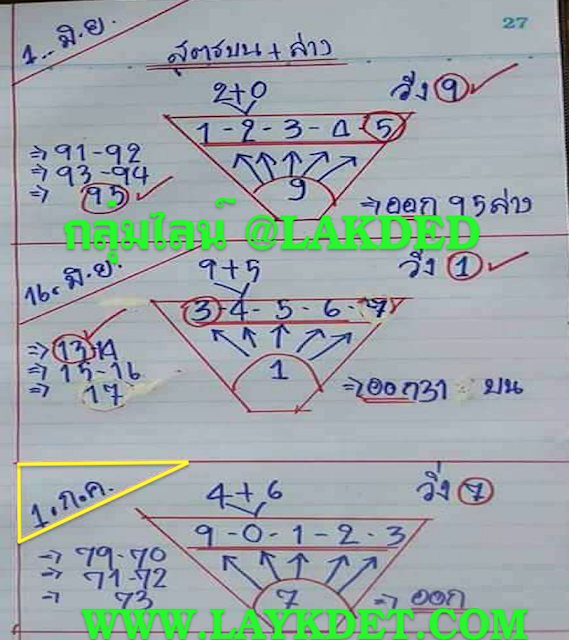 27
1.. มิ.ย.
สูตรบน + ล่าง
2+0
วิ่ง 9
1-2-3-4-5
⇒ 91-92
⇒ 93-94
⇒ 95
9
⇒ออก 95 ล่าง
กลุ่มไลน์ @LAKDED
16. มิ.ย.
9+5
วิ่ง 1
3-4-5-6-7
⇒ 13-14
⇒ 15-16
⇒ 17
1
⇒ออก31 บน
1.ก.ค.
4+6
วิ่ง 7
9-0-1-2-3
⇒ 79-70
⇒ 71-72
⇒ 73
7
⇒ ออก
WWW.LAYKDET.COM